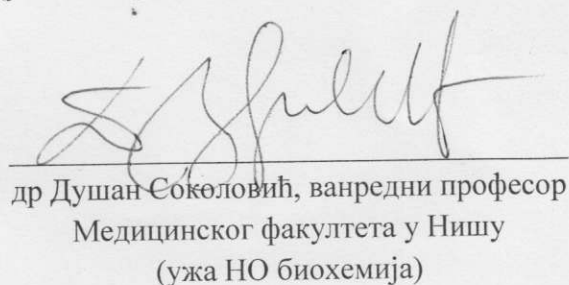 др Душан Соколовић, ванредни професор
Медицинског факултета у Нишу
(ужа НО биохемија)